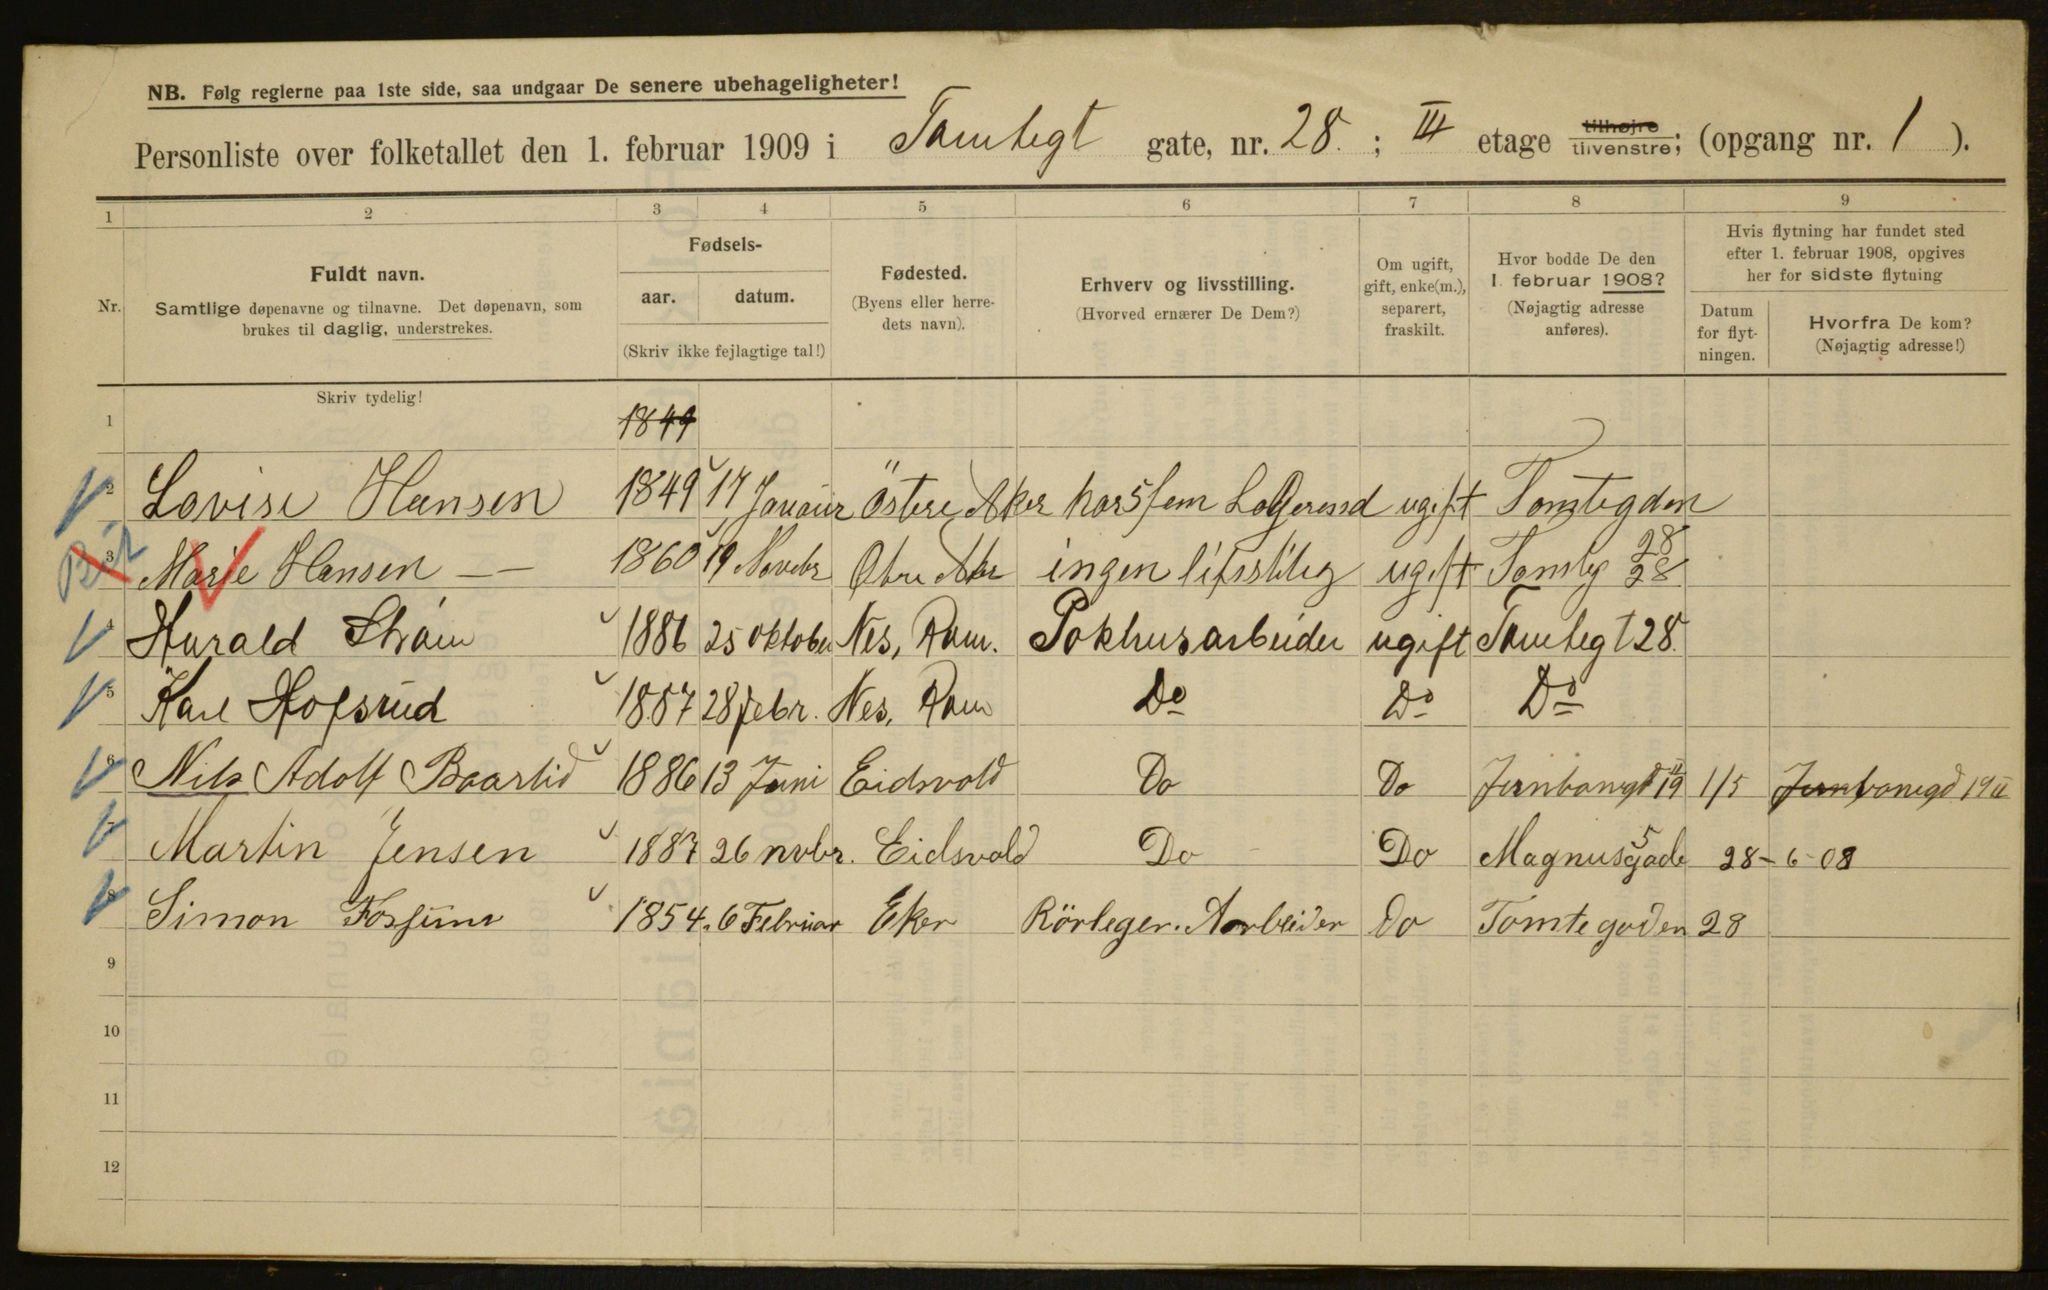 NB. Følg reglerne paa 1ste side, saa undgaar De senere ubehageligheter!
Personliste over folketallet den 1. februar 1909 i Tomtegt gate, nr. 28. ; III etage tilhøjre tilvenstre; (opgang nr. 1 ).
1 2 3 4 5 6 7 8 9
Nr.
Fuldt navn.
Samtlige døpenavne og tilnavne. Det døpenavn, som
brukes til daglig, understrekes.
Fødsels-
aar. datum.
(Skriv ikke fejlagtige tal!)
Fødested.
(Byens eller herre-
dets navn).
Erhverv og livsstilling.
(Hvorved ernærer De Dem?)
Om ugift,
gift, enke(m.),
separert,
fraskilt.
Hvor bodde De den
1. februar 1908?
(Nøjagtig adresse
anføres).
Hvis flytning har fundet sted
efter 1. februar 1908, opgives
her for sidste flytning
Datum
for flyt-
ningen.
Hvorfra De kom?
(Nøjagtig adresse!)
Skriv tydelig!
1 1849
2 Lovise Hansen 1849 17 Januar Östere Aker har 5 fem ugift Tomtegden
28
3 Marie Hansen 1860 19 Novebr Aker ingen ugift Tomteg 28
4 Harald Strøm 1886 25 oktober Nes, Rom. Pakhusarbeider ugift Tomtegt 28.
5 Karl Hofsrud 1887 28 febr. Nes, Rom Do Do Do
6 Nils Adolf Baarlid 1886 13 Juni Eidsvold Do Do Jernbanegd 19 II 1/5 Jernbanegd 19 II
7 Martin Jensen 1887 26 novbr. Eidsvold Do Do Magnusgade 5 28-6-08
8 Simon Fossum 1854. 6 Februar Eker Rörleger. Aarbeider Do Tomtegaden 28
9
10
11
12